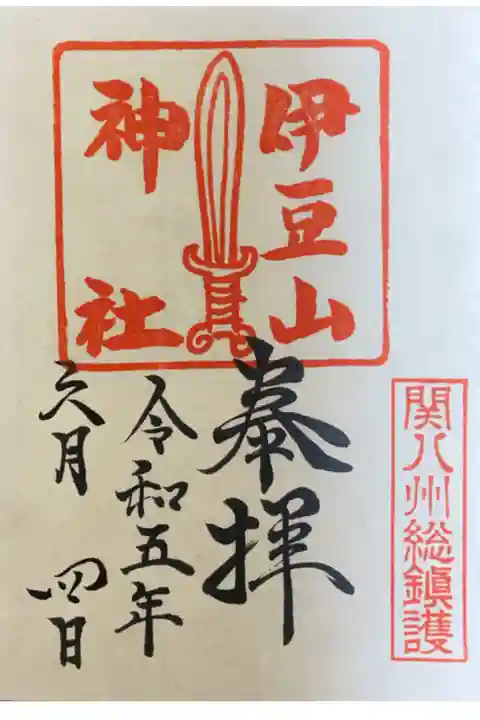 関八州総鎮護
伊豆山
神社
奉拝
令和五年
六月四日